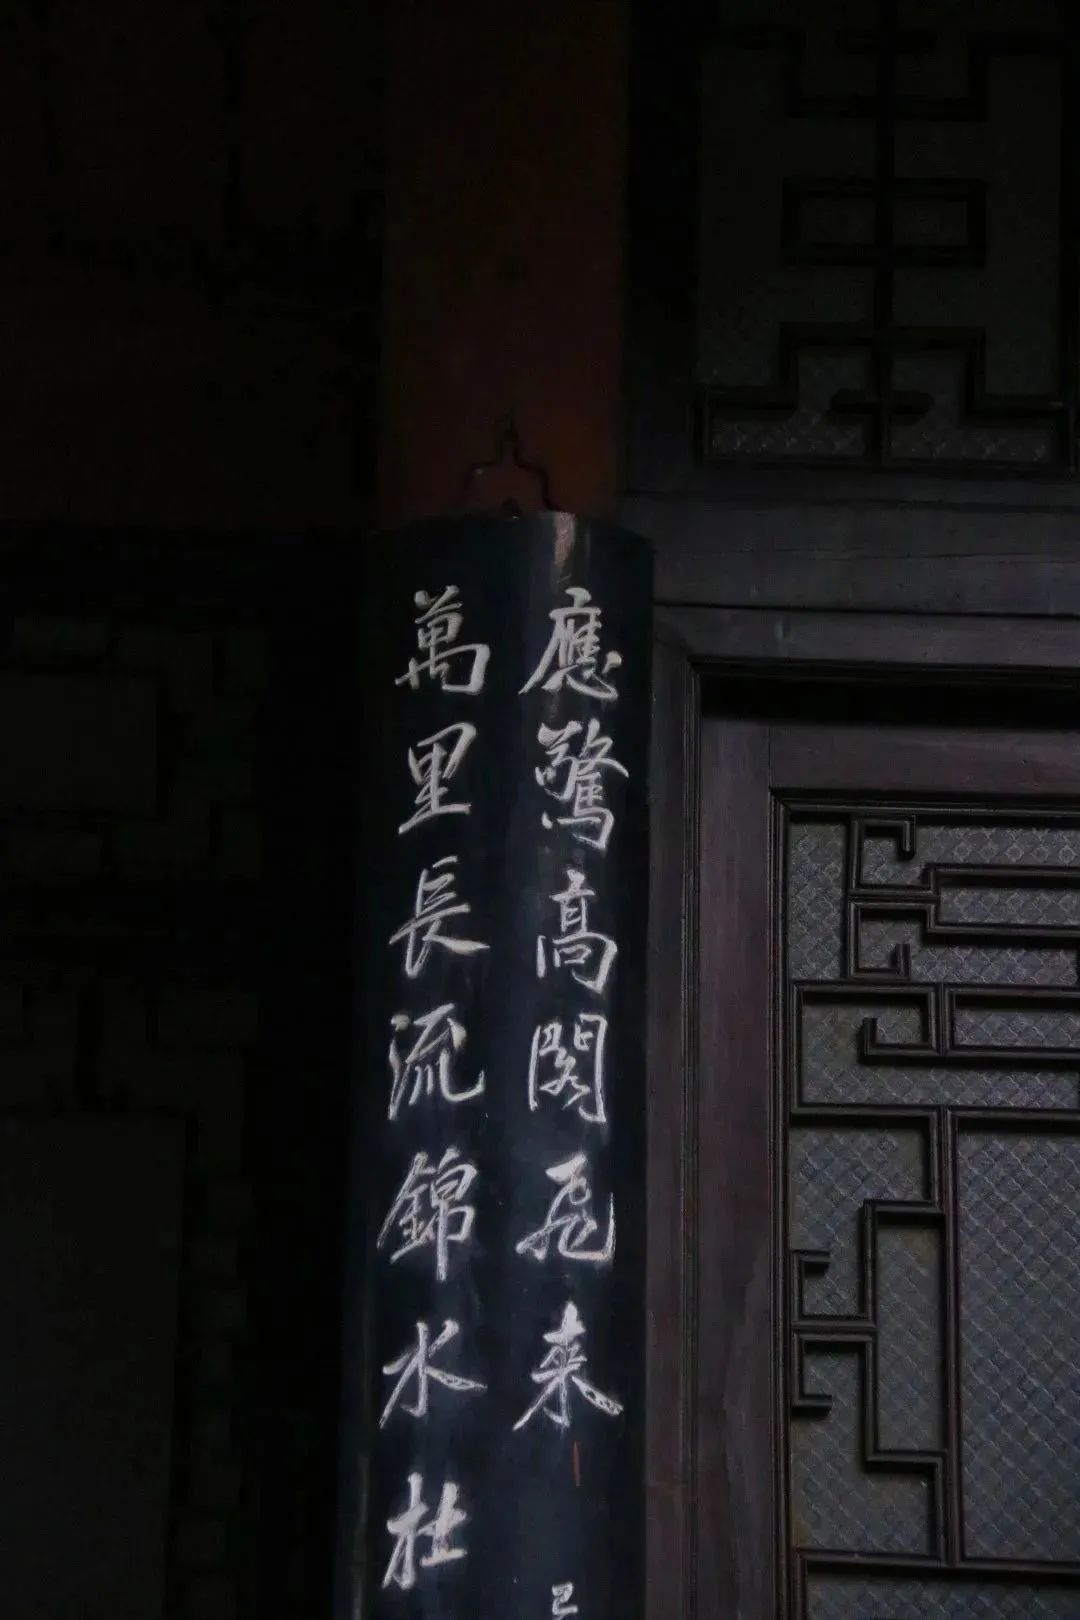 萬里長流錦水杜
應驚高閣飛來